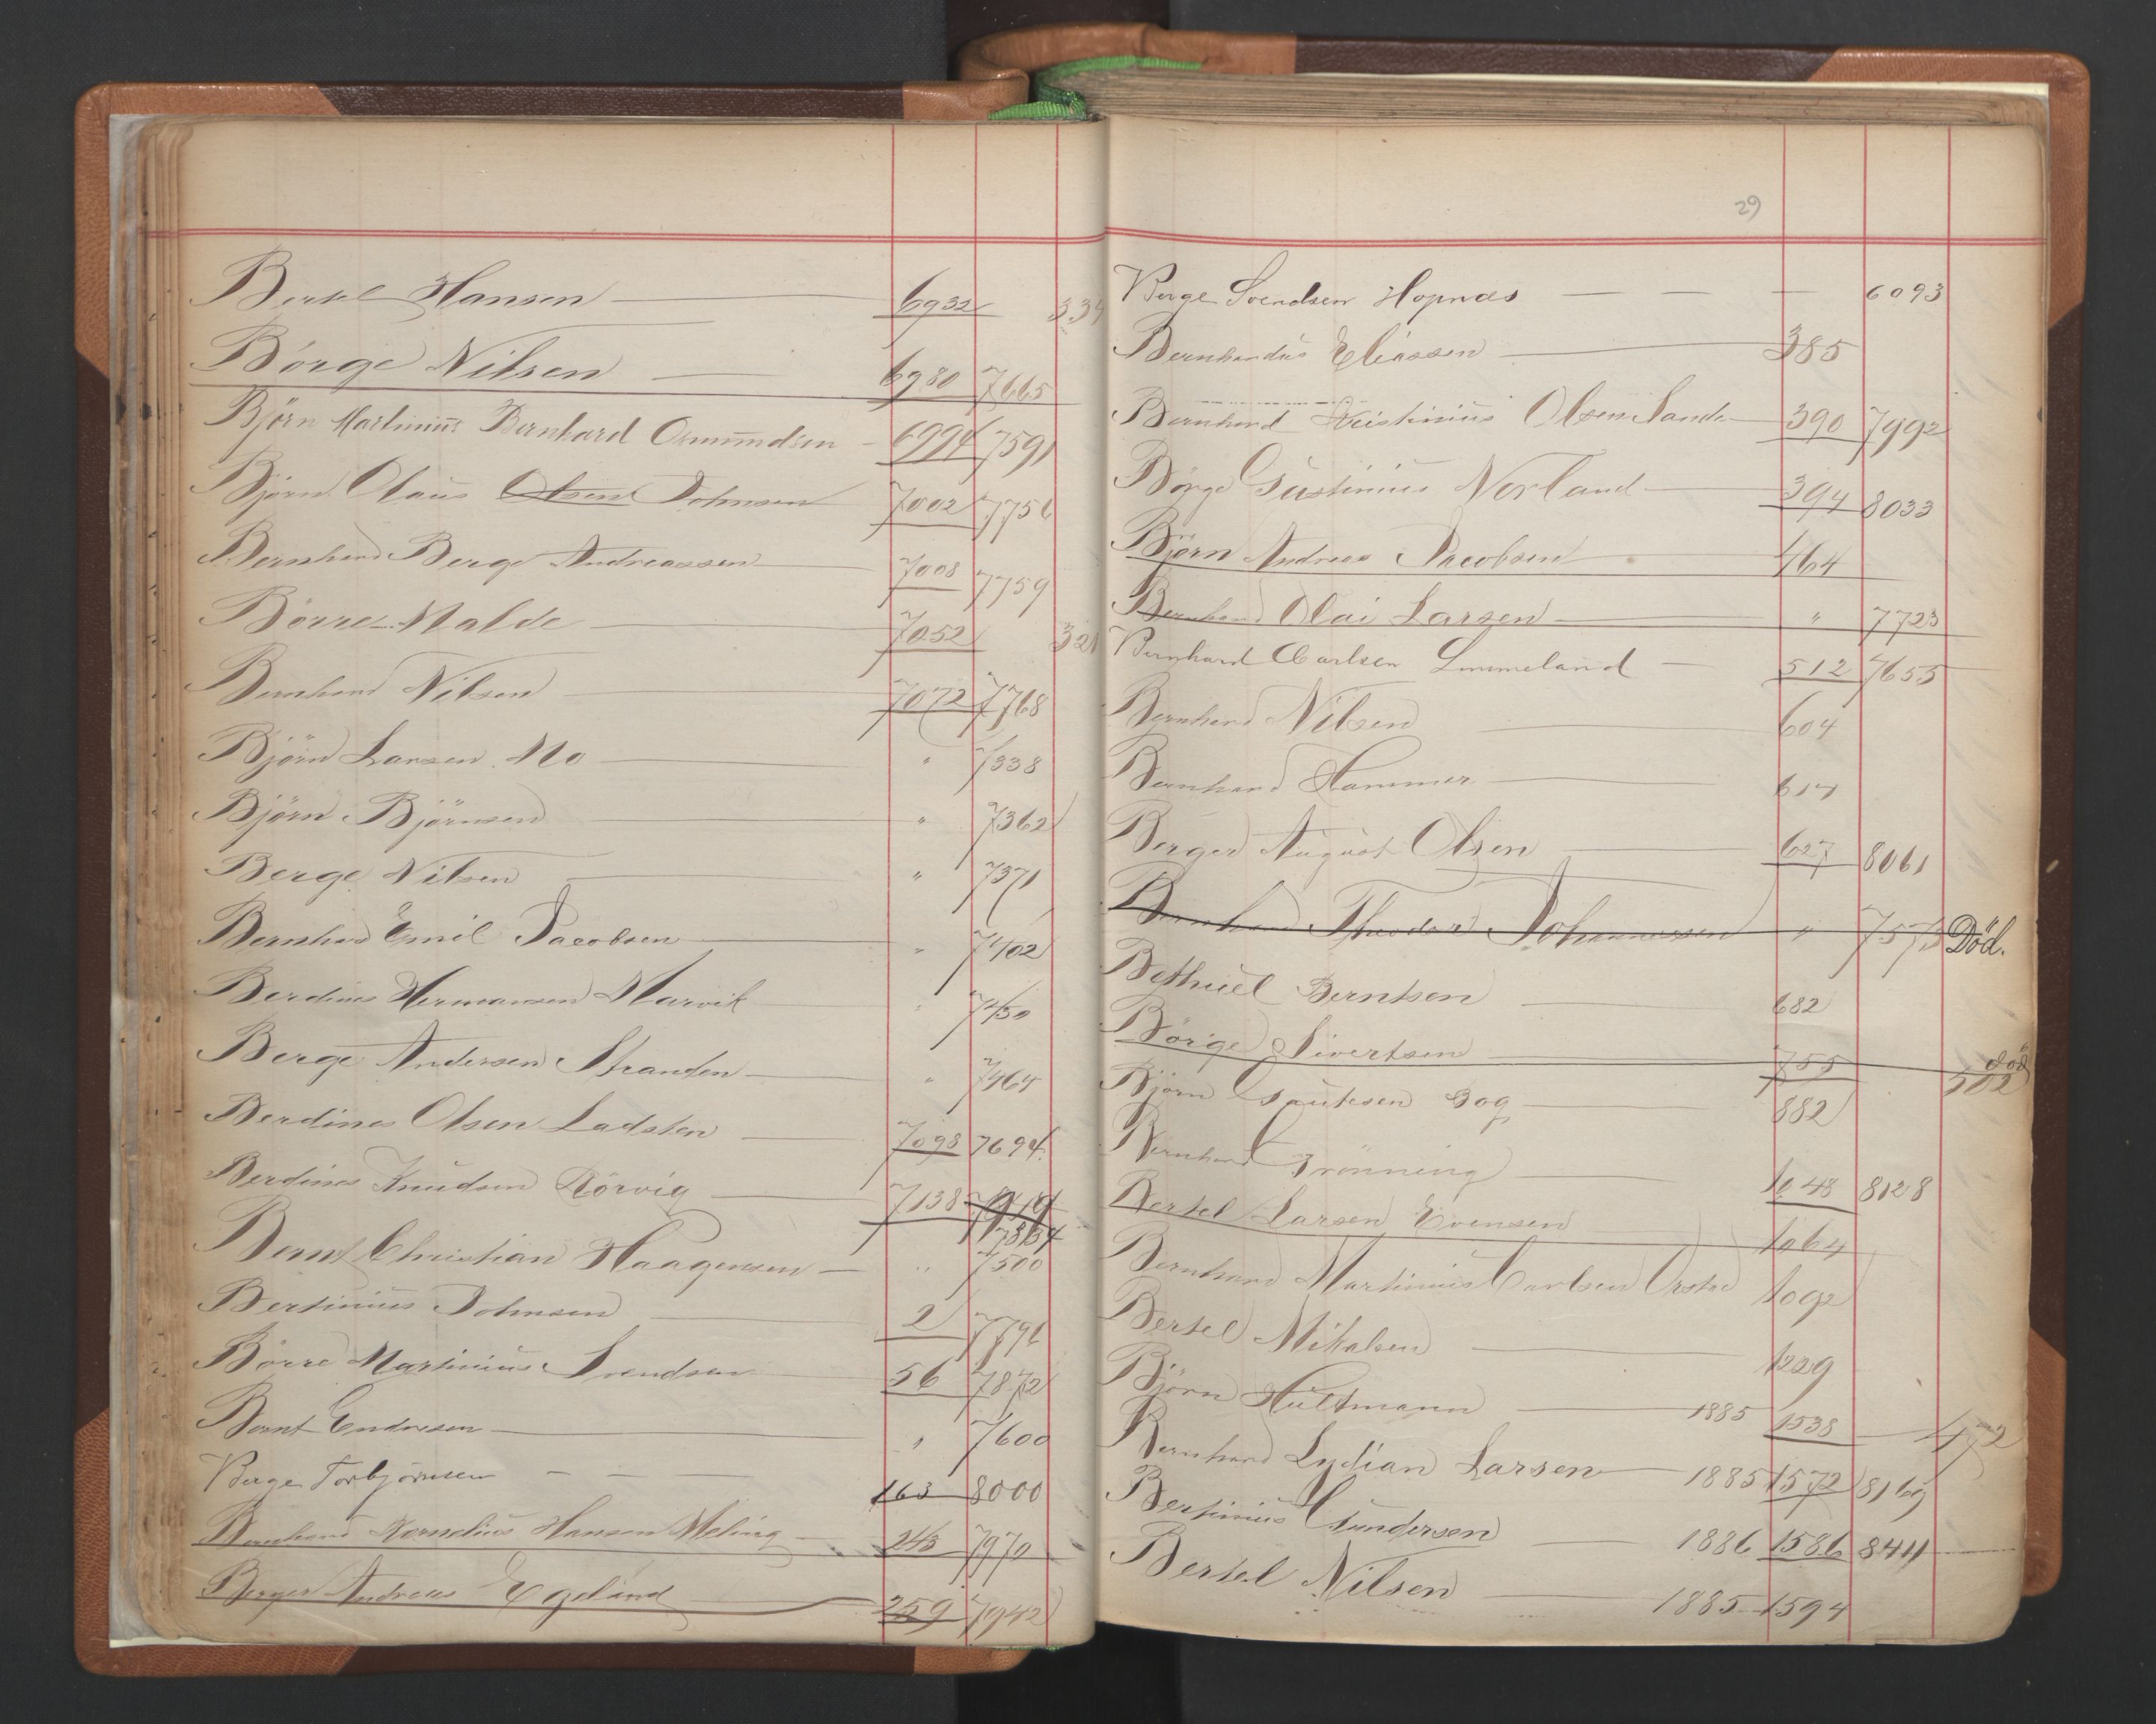 Bertel Hansen 6932 334
Börge Nilsen 6980 7665
Björn Martinius Bernhard Osmundsen 6994 7591
Björn Olaus Olsen Johnsen 7002 7756
Bernhard Berge Andreassen 7008 7759
Börre Malde 7052 321
Bernhard Nilsen 7072 7768
Björn Larsen Mo " 7338
Björn Björnsen " 7362
Berge Nilsen " 7371
Bernhard Emil Jacobsen " 7402
Berdines Hermansen Marvik " 7450
Berge Andersen Stranden " 7464
Berdines Olsen Ladsten 7098 7694
Berdines Knudsen Rörvig 7138
7834
Bernt Christian Haagensen " 7500
Bertinius Johnsen 2 7796
Börre Martinius Svendsen 56 7872
Bernt Endresen " 7600
Berge Torbjörnsen 163 8000
Bernhard Kornelius Hansen Meling 243 7970
Berger Andreas Egeland 259 7942
29
Berge Svendsen Hopnæs 6093
Bernhardus Eliassen 385
Bernhard Kristinius Olsen Sande 390 7992
Börge Gustinius Norland 394 8033
Björn Andreas Jacobsen 464
Bernhard Olai Larsen " 7723
Bernhard Carlsen Lommeland 512 7655
Bernhard Nilsen 604
Bernhard Hammer 617
Berger August Olsen 627 8061
Bernhard Theodor Johannessen " 7573 Död.
Bethuel Berntsen 682
Börge Sivertsen 755 död
502
Björn Gautesen Bog 882
Bernhard Grönning 1048 8128
Bertel Larsen Evensen 1064
Bernhard Martinius Carlsen 1092
Bertel Mikalsen 1229
Björn Hultmann 1885 1538 472
Bernhard Lydian Larsen 1885 1572 8169
Bertinius Gundersen 1886 1586 8411
Bertel Nilsen 1885 1594